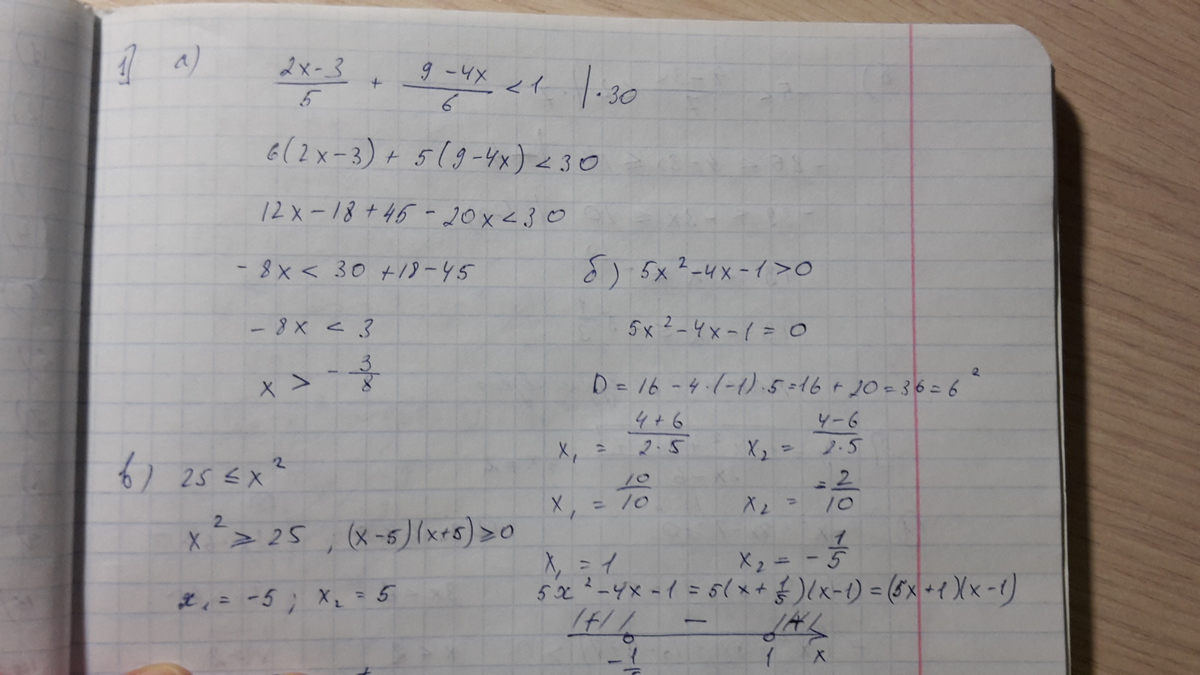 1] а) (2x-3)/5 + (9-4x)/6 < 1 | · 30
6(2x-3) + 5(9-4x) < 30
12x - 18 + 45 - 20x < 30
-8x < 30 + 18 - 45
-8x < 3
x > -3/8
б) 5x² - 4x - 1 > 0
5x² - 4x - 1 = 0
D = 16 - 4·(-1)·5 = 16 + 20 = 36 = 6²
x₁ = (4+6)/(2·5) x₂ = (4-6)/(2·5)
x₁ = 10/10 x₂ = -2/10
x₁ = 1 x₂ = -1/5
5x² - 4x - 1 = 5(x + 1/5)(x-1) = (5x+1)(x-1)
+ — +
-1/5 1 x
в) 25 ≤ x²
x² ≥ 25, (x-5)(x+5) ≥ 0
x₁ = -5; x₂ = 5